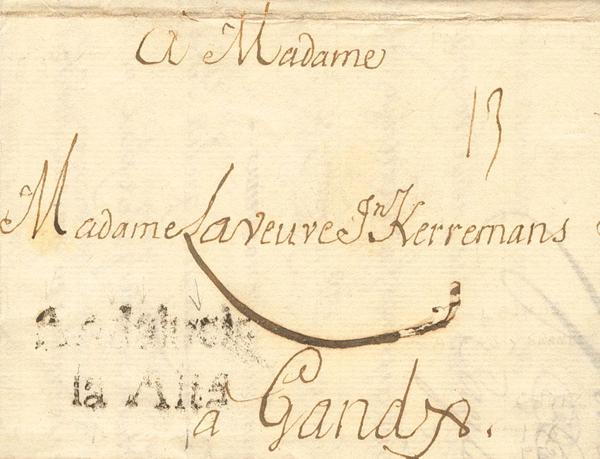 A Madame
13
Madame La veuve Jn Kerremans
Andalucia
la Alta
à Gand